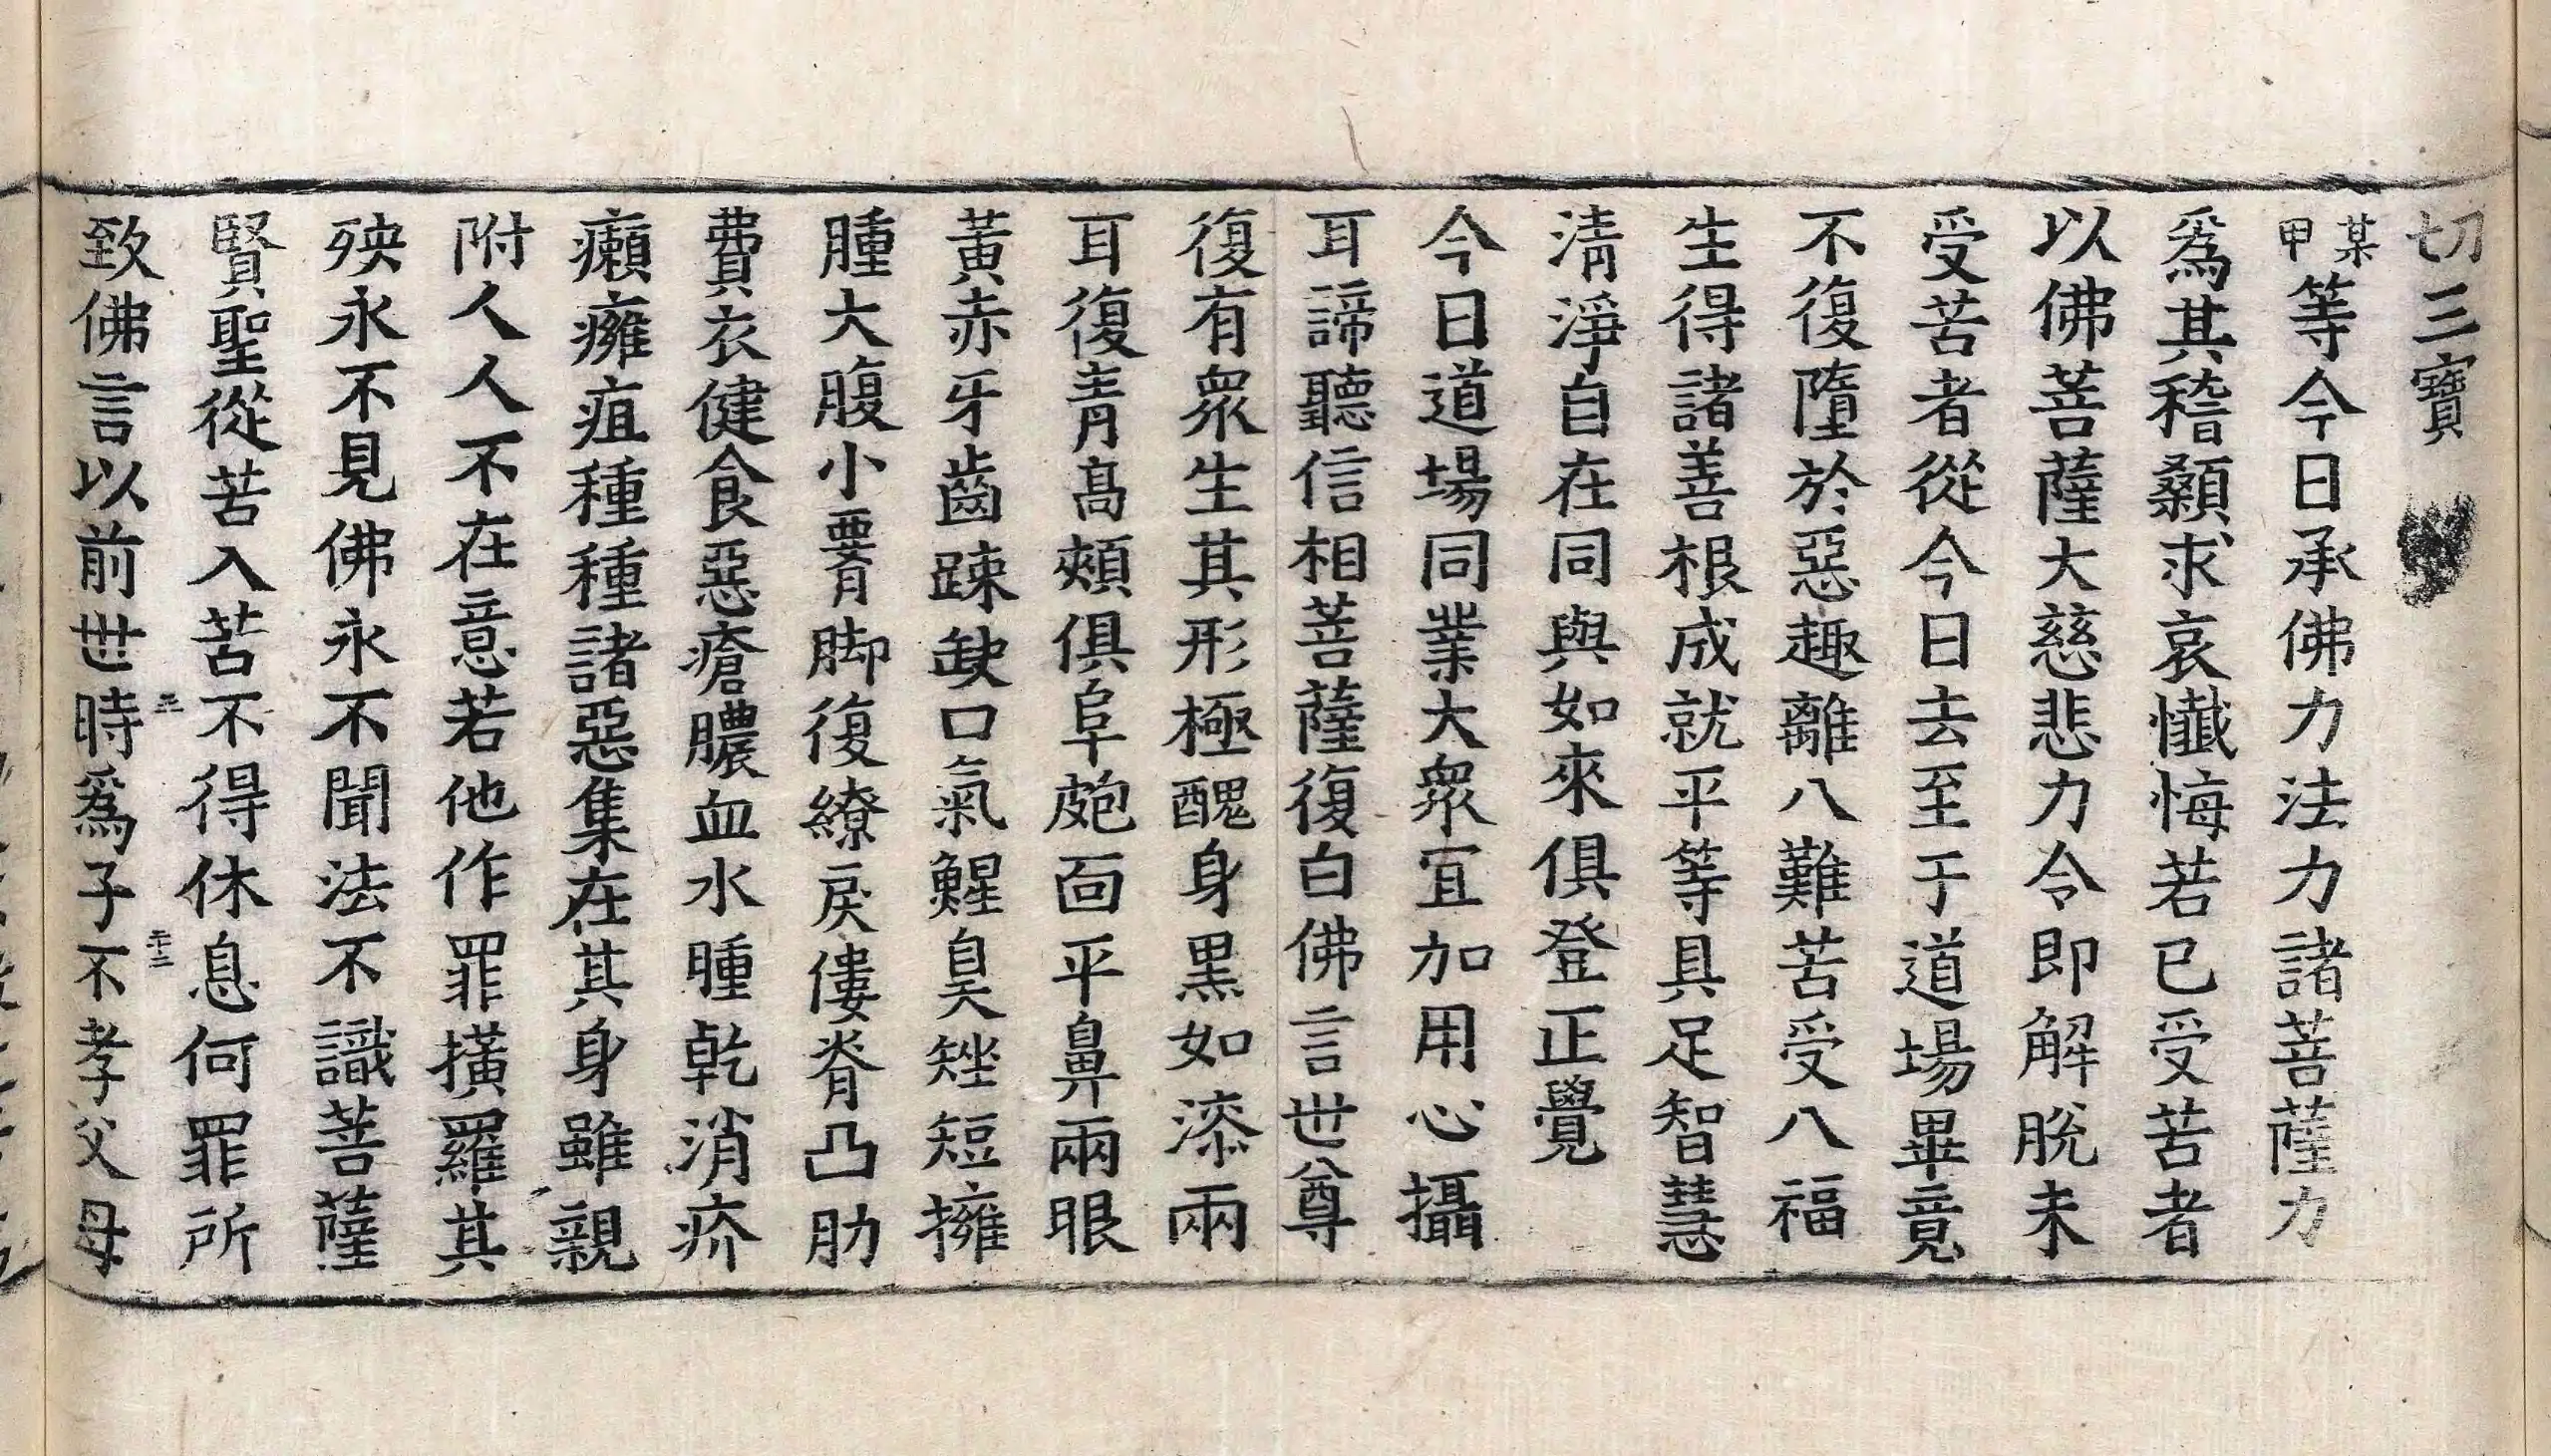 切三寶
某甲等今日承佛力法力諸菩薩力
爲其稽顙求哀懺悔若已受苦者
以佛菩薩大慈悲力令即解脫未
受苦者從今日去至于道場畢竟
不復墮於惡趣離八難苦受八福
生得諸善根成就平等具足智慧
淸淨自在同與如來俱登正覺
今日道場同業大衆宜加用心攝
耳諦聽信相菩薩復白佛言世尊
復有衆生其形極醜身黑如漆兩
耳復靑高頰俱阜皰面平鼻兩眼
黃赤牙齒踈缺口氣鯹臭矬短擁
腫大腹小𦝫脚復繚戾僂脊凸肋
費衣健食惡瘡膿血水腫乾消疥
癩癰疽種種諸惡集在其身雖親
附人人不在意若他作罪橫羅其
殃永不見佛永不聞法不識菩薩
賢聖從苦入苦不得休息何罪所
致佛言以前世時爲子不孝父母
三
十二